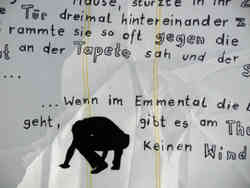 Hause, stürzte in ihr
e Tür dreimal hintereinander z
rammte sie so oft gegen die
t an der Tapete sah und der
...
...Wenn im Emmental die
geht, gibt es am Thu
Keinen Wind